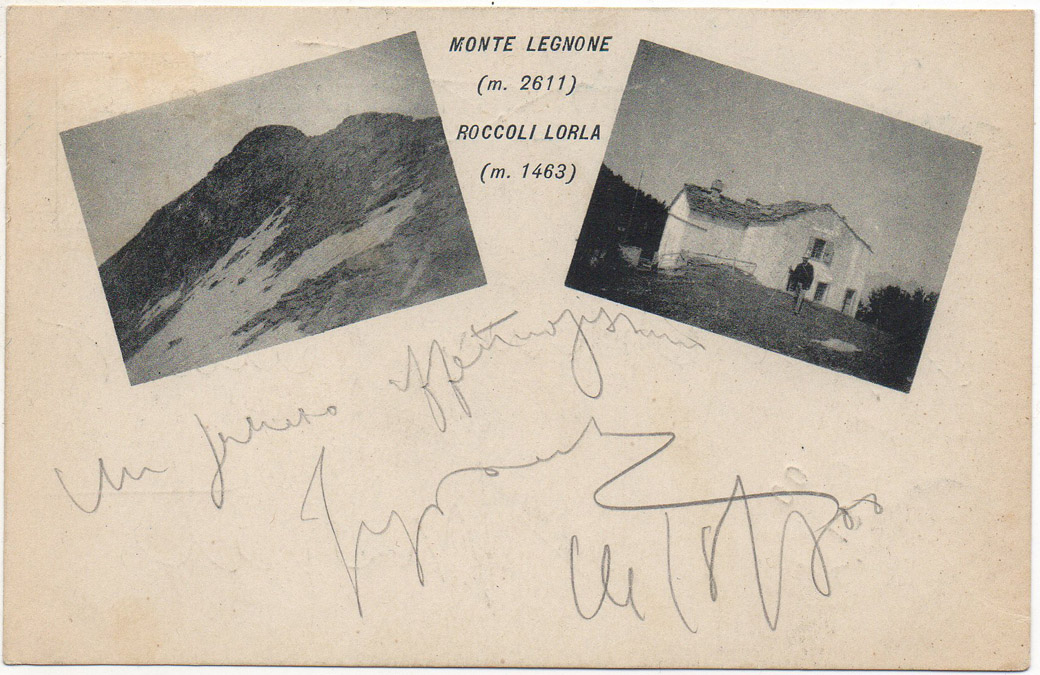 MONTE LEGNONE
(m. 2611)
ROCCOLI LORLA
(m. 1463)
Un pensiero affettuosissimo